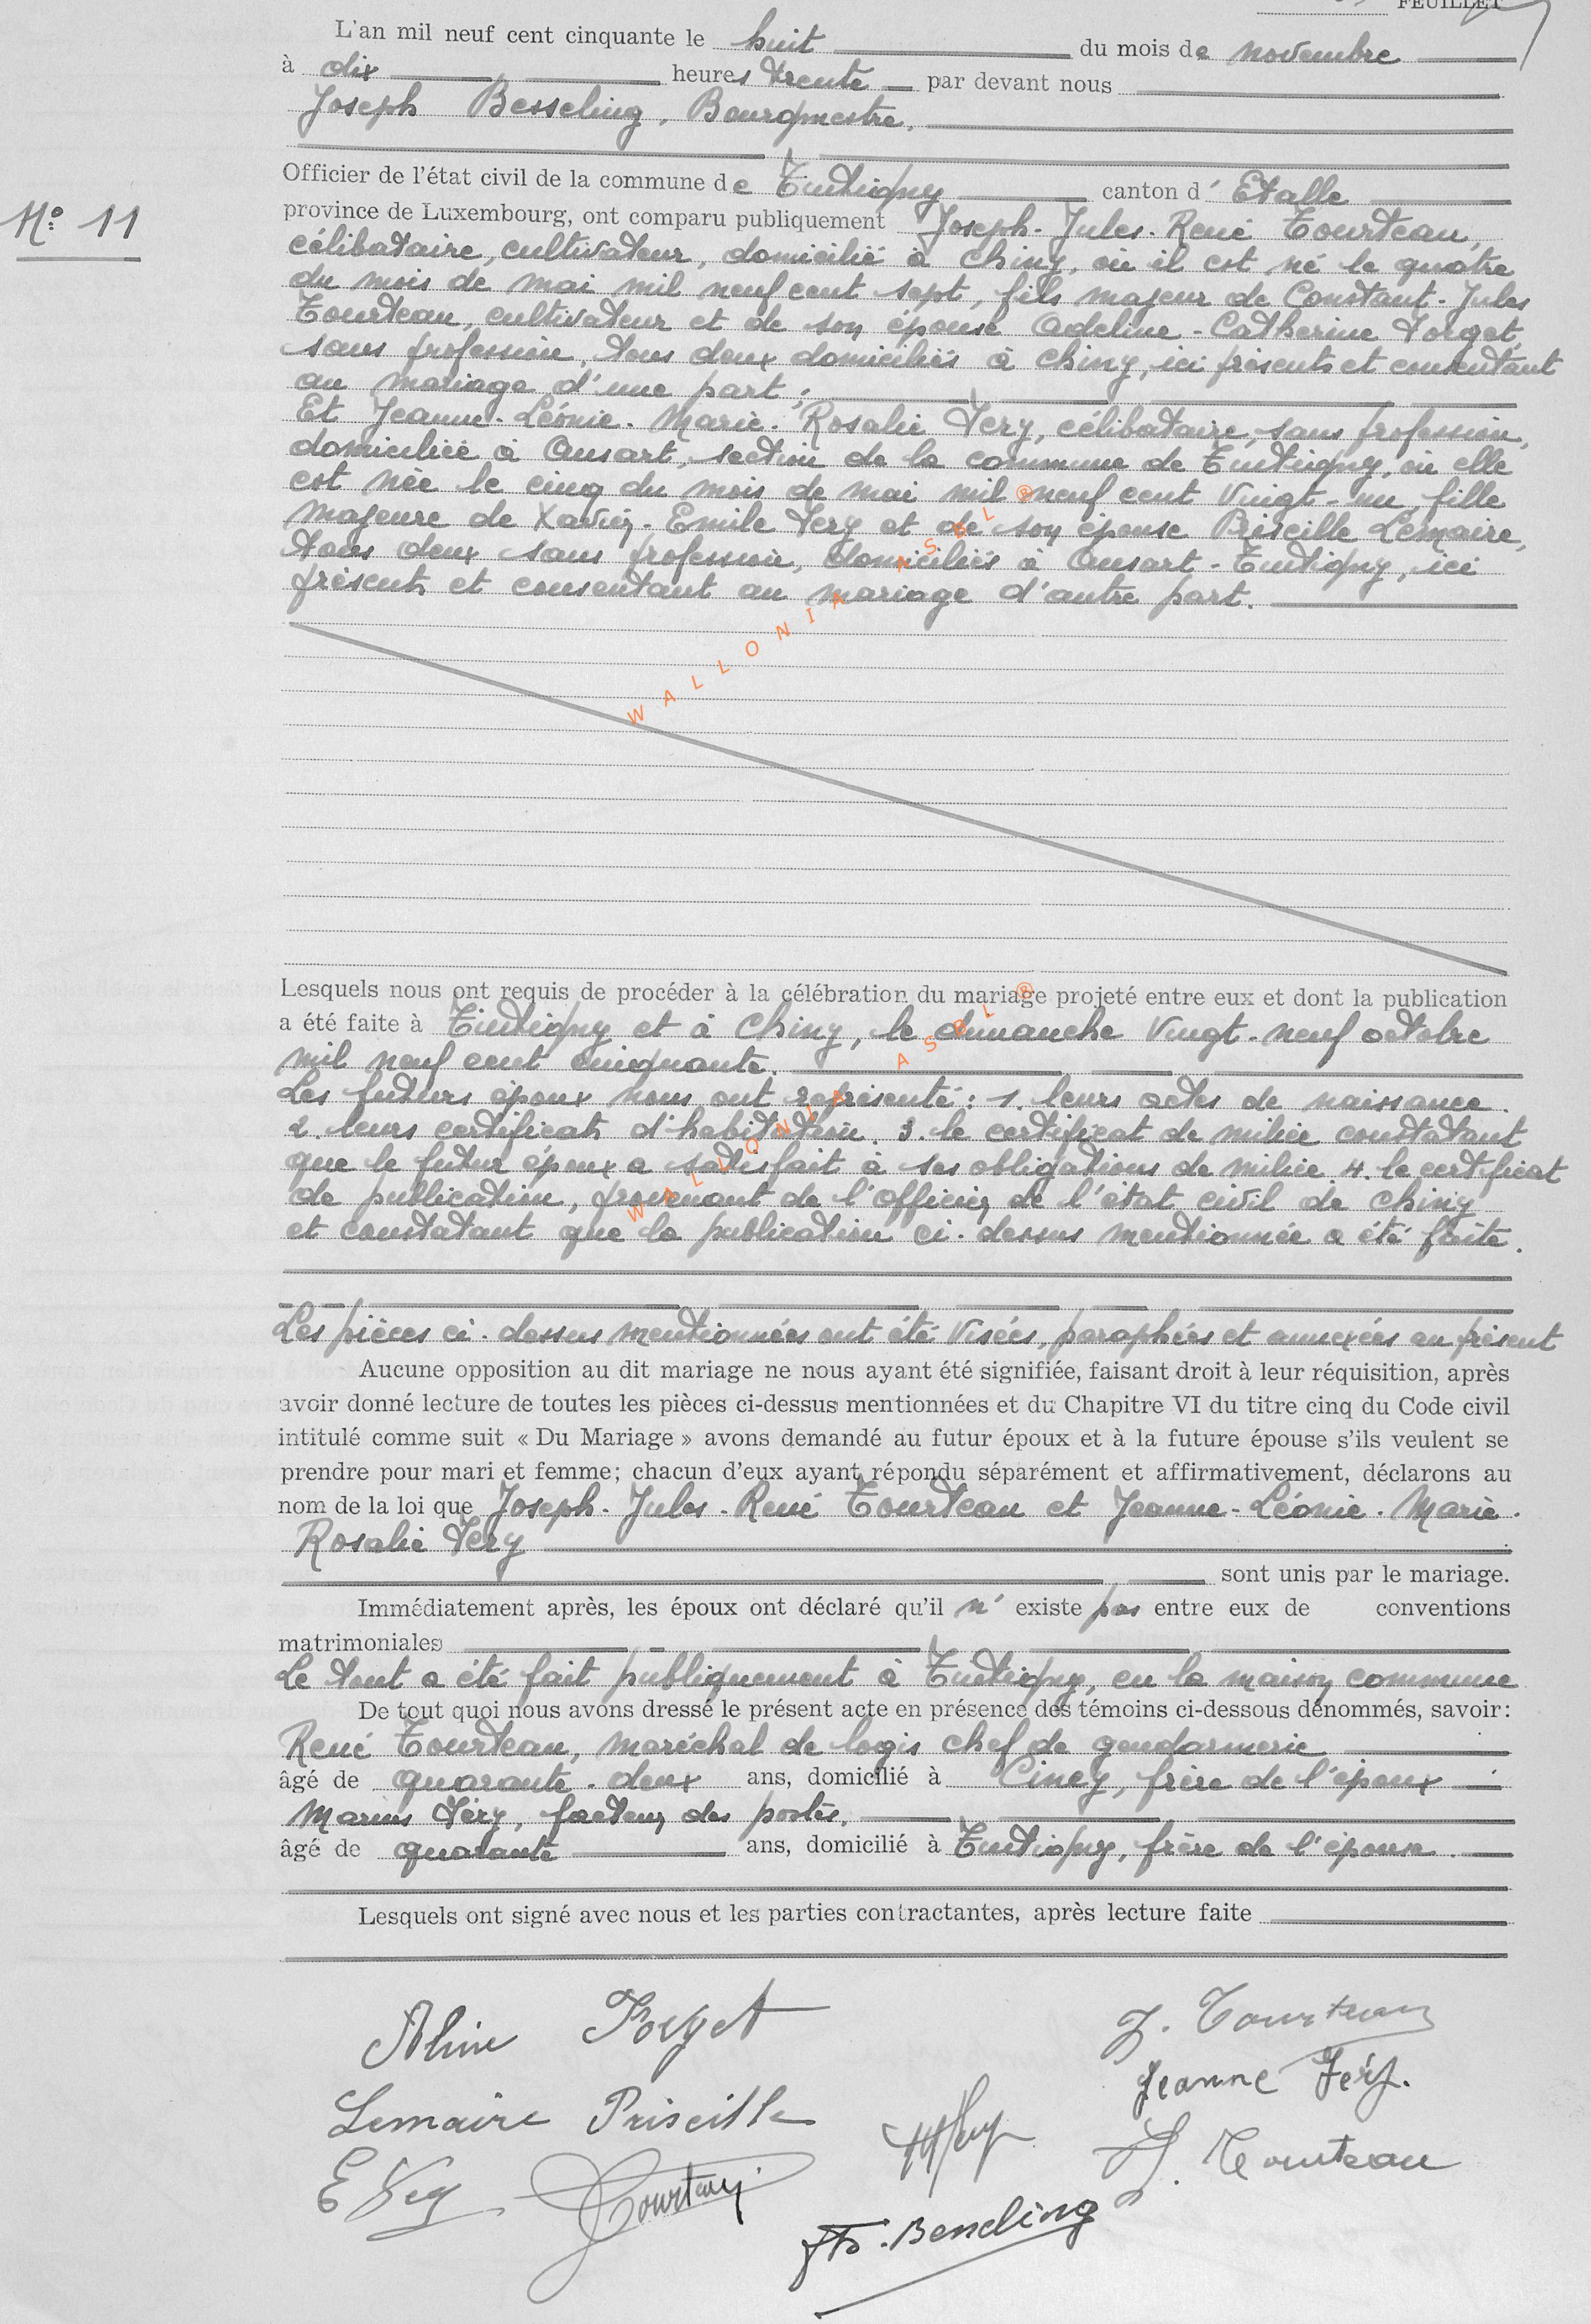 FEUILLET
L'an mil neuf cent cinquante le huit du mois de novembre
à dix heures trente par devant nous
Joseph Besseling, Bourgmestre,
Officier de l'état civil de la commune de Tintigny canton d'Etalle
N° 11
province de Luxembourg, ont comparu publiquement Joseph-Jules-René Tourteau,
célibataire, cultivateur, domicilié à Chiny, où il est né le quatre
du mois de mai mil neuf cent sept, fils majeur de Constant-Jules
Tourteau, cultivateur et de son épouse Adeline-Catherine Forget,
sans profession, tous deux domiciliés à Chiny, ici présents et consentant
au mariage d'une part;
Et Jeanne-Léonie-Marie-Rosalie Fery, célibataire, sans profession,
domiciliée à Ansart, section de la commune de Tintigny, où elle
est née le cinq du mois de mai mil neuf cent vingt-un, fille
majeure de Xavier-Emile Fery et de son épouse Priscille Lemaire,
tous deux sans profession, domiciliés à Ansart-Tintigny, ici
présents et consentant au mariage d'autre part.
WALLONIA ASBL ®
Lesquels nous ont requis de procéder à la célébration du mariage projeté entre eux et dont la publication
a été faite à Tintigny et à Chiny, le dimanche vingt-neuf octobre
mil neuf cent cinquante.
Les futurs époux nous ont représenté: 1. leurs actes de naissance.
2. leurs certificats d'habitation. 3. le certificat de milice constatant
que le futur époux a satisfait à ses obligations de milice 4. le certificat
de publication, provenant de l'officier de l'état civil de Chiny
et constatant que la publication ci-dessus mentionnée a été faite.
WALLONIA ASBL ®
Les pièces ci-dessus mentionnées ont été visées, paraphées et annexées au présent
Aucune opposition au dit mariage ne nous ayant été signifiée, faisant droit à leur réquisition, après
avoir donné lecture de toutes les pièces ci-dessus mentionnées et du Chapitre VI du titre cinq du Code civil
intitulé comme suit « Du Mariage » avons demandé au futur époux et à la future épouse s'ils veulent se
prendre pour mari et femme; chacun d'eux ayant répondu séparément et affirmativement, déclarons au
nom de la loi que Joseph-Jules-René Tourteau et Jeanne-Léonie-Marie-
Rosalie Fery
sont unis par le mariage.
Immédiatement après, les époux ont déclaré qu'il n'existe pas entre eux de conventions
matrimoniales
Le tout a été fait publiquement à Tintigny, en la maison commune
De tout quoi nous avons dressé le présent acte en présence des témoins ci-dessous dénommés, savoir:
René Tourteau, maréchal de logis chef de gendarmerie
âgé de quarante-deux ans, domicilié à Ciney, frère de l'époux
Marius Féry, facteur des postes,
âgé de quarante ans, domicilié à Tintigny, frère de l'épouse.
Lesquels ont signé avec nous et les parties contractantes, après lecture faite
Aline Forget
J. Tourteau
Jeanne Féry.
Lemaire Priscille
Tourteau
E Fery
Tourteau
Besseling